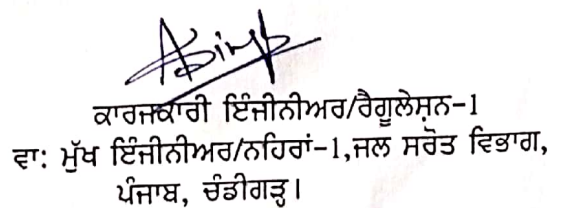 ਕਾਰਜਕਾਰੀ ਇੰਜੀਨੀਅਰ/ਰੈਗੂਲੇਸ਼ਨ-1
ਵਾ: ਮੁੱਖ ਇੰਜੀਨੀਅਰ/ਨਹਿਰਾਂ-1,ਜਲ ਸਰੋਤ ਵਿਭਾਗ,
ਪੰਜਾਬ, ਚੰਡੀਗੜ੍ਹ।